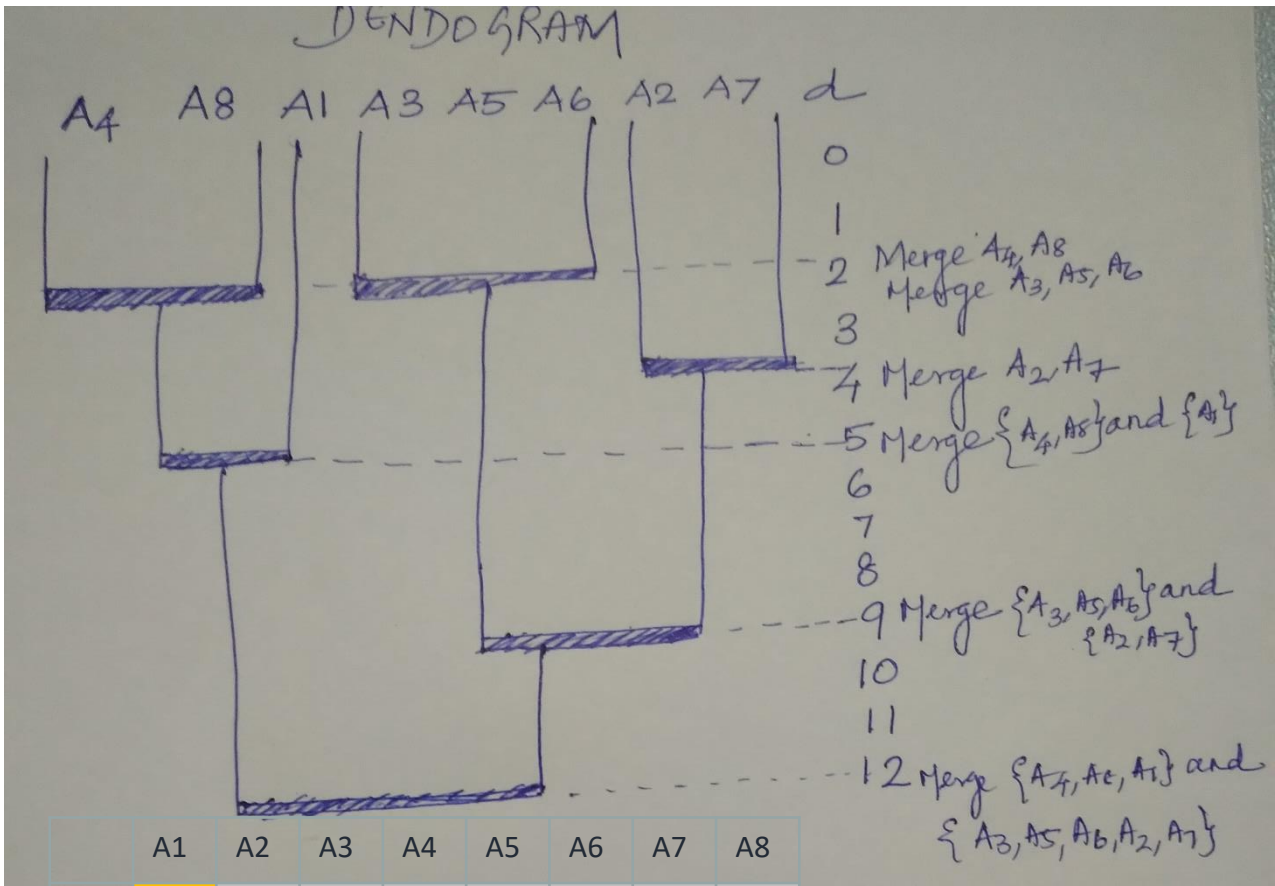 DENDOGRAM
A4 A8 A1 A3 A5 A6 A2 A7 d
0
1
2 Merge A4, A8
Merge A3, A5, A6
3
4 Merge A2, A7
5 Merge {A4, A8} and {A1}
6
7
8
9 Merge {A3, A5, A6} and
{A2, A7}
10
11
12 Merge {A4, A8, A1} and
{A3, A5, A6, A2, A7}
A1 A2 A3 A4 A5 A6 A7 A8